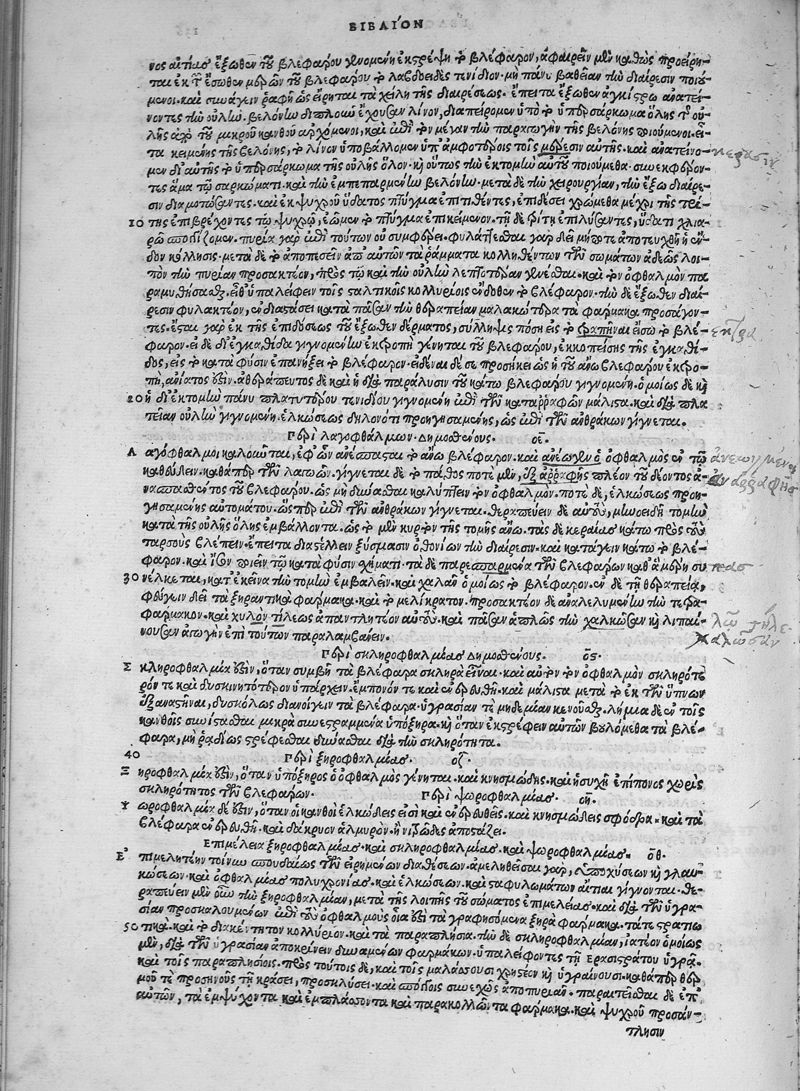 ΒΙΒΛΙΟΝ
νος αἰτίας ἔξωθεν τοῦ βλεφάρου γινομένη ἐκτρέψῃ τὸ βλέφαρον, ἀφαιρεῖν μὲν καθὼς προείρη-
ται ἐκ τῶν ἔσωθεν μερῶν τοῦ βλεφάρου τὸ λαβδοειδὲς τενίδιον· μὴ πάνυ βαθεῖαν τὴν διαίρεσιν ποιού-
μενοι· καὶ συνάγειν ῥαφῇ ὡς εἴρηται τὰ χείλη τῆς διαιρέσεως. ἔπειτα ἔξωθεν ἀγκίστρῳ ἀνατεί-
νοντες τὴν οὐλὴν, βελόνην διπλοῦν ἔχουσαν λίνον, διαπείρομεν ὑπὸ τὸ ὑπερσάρκωμα ὅλης τῆς οὐ-
λῆς ἀπὸ τοῦ μικροῦ κανθοῦ ἀρχόμενοι, καὶ ἐπὶ τὸν μέγαν τὴν παραγωγὴν τῆς βελόνης ποιούμενοι· εἶ-
τα κειμένης τῆς βελόνης, τὸ λίνον ὑποβάλλομεν ὑπ' ἀμφοτέροις τοῖς μέρεσιν αὐτῆς· καὶ ἀνατείνο- κέρασιν
μεν δι' αὐτῆς τὸ ὑπερσάρκωμα τῆς οὐλῆς ὅλον· καὶ οὕτως τὴν ἐκτομὴν αὐτοῦ ποιούμεθα· συνεκφέρον-
τες ἅμα τῷ σαρκώματι καὶ τὴν ἐμπεπαρμένην βελόνην· μετὰ δὲ τὴν χειρουργίαν, τὴν ἔξω διαίρε-
σιν διαμοτώσαντες· καὶ ἐκ ψυχροῦ ὕδατος πτύγμα ἐπιτιθέντες, ἐπιδέσει χρώμεθα μέχρι τῆς τρί-
10 της ἐπιβρέχοντες τῷ ψυχρῷ, ἐῶμεν τὸ πτύγμα ἐπικείμενον· τῇ δὲ τρίτῃ ἐπιλύσαντες, ὕδατι χλια-
ρῷ ἀποσπογγίζομεν· πυρία γὰρ ἐπὶ τούτων οὐ συμφέρει· φυλάττεσθαι γὰρ δεῖ μήποτε ἀποτευχθῇ ἡ ἔν-
δον κόλλησις· μετὰ δὲ τὸ ἀποπεσεῖν ἀπ' αὐτῶν τὰ ῥάμματα κολληθέντων τῶν σωμάτων ἀδεῶς λοι-
πὸν τὴν πυρίαν προσακτέον, πρὸς τῷ καὶ τὴν οὐλὴν λεπτοτέραν γίνεσθαι· καὶ τὸν ὀφθαλμὸν πα-
ραμυθήσασθαι, εἶθ' ὑπαλείφειν τοῖς σταλτικοῖς κολλυρίοις ἔνδοθεν τὸ βλέφαρον· τὴν δὲ ἔξωθεν διαί-
ρεσιν φυλακτέον, ἐν διαστάσει κατὰ πᾶσαν τὴν θεραπείαν μαλακώτερα τὰ φάρμακα προσάγον-
τες· ἔσται γὰρ ἐκ τῆς ἐπιδόσεως τοῦ ἔξωθεν δέρματος, σύλληψις πόση εἰς τὸ στραφῆναι εἴσω τὸ βλέ-
φαρον· εἰ δὲ δι' ἐγκανθίδα γιγνομένη ἐκτροπὴ γίνηται τοῦ βλεφάρου, ἐκκοπείσης τῆς ἐγκανθί-
δος, εἰς τὸ κατὰ φύσιν ἐπανήξει τὸ βλέφαρον· εἰδέναι δέ σε προσήκει ὡς ἡ τοῦ ἄνω βλεφάρου ἐκτρο-
πὴ, ἀνίατός ἐστιν· ἀθεράπευτος δὲ καὶ ἡ διὰ παράλυσιν τοῦ κάτω βλεφάρου γιγνομένη. ὁμοίως δὲ καὶ
20 ἡ δι' ἐκτομὴν πάνυ πλατυτέρου τενιδίου γιγνομένη ἐπὶ τῶν καταρραφῶν μάλιστα· καὶ διὰ πλα-
τεῖαν οὐλὴν γιγνομένη, ἑλκώσεως δηλονότι προηγησαμένης, ὡς ἐπὶ τῶν ἀνθράκων γίγνεται.
Περὶ λαγοφθάλμων Δημοσθένους. οε.
Λ αγόφθαλμοι καλοῦνται, ἐφ' ὧν ἀνέσπασται τὸ ἄνω βλέφαρον· καὶ ἀνέῳγεν ὁ ὀφθαλμὸς ἐν τῷ
καθεύδειν, καθάπερ τῶν λαγωῶν. γίγνεται δὲ τὸ πάθος ποτὲ μὲν, ἐξ ἀρραφῆς πλέον τοῦ δέοντος ἀ-
νασπασθέντος τοῦ βλεφάρου, ὡς μὴ δύνασθαι καλύπτειν τὸν ὀφθαλμόν. ποτὲ δὲ, ἑλκώσεως προη-
γησαμένης αὐτομάτου, ὥσπερ ἐπὶ τῶν ἀνθράκων γίγνεται. θεραπεύειν δὲ αὐτοὺς, μηνοειδῆ τομὴν
κατὰ τῆς οὐλῆς ὅλης ἐμβάλλοντα, ὡς τὸ μὲν κυρτὸν τῆς τομῆς ἄνω· τὰς δὲ κεραίας κάτω πρὸς τοὺς
ταρσοὺς βλέπειν· ἔπειτα διαστέλλειν ξύσμασιν ὀθονίων τὴν διαίρεσιν· καὶ κατάγειν κάτω τὸ βλέ-
φαρον· καὶ ἴσον ποιεῖν τῷ κατὰ φύσιν σχήματι· τὰ δὲ παρεσπαρμένα τῶν βλεφάρων καθ' ἃ μέρη συ- πασ
30 νέλκεται, κατ' ἐκεῖνα τὴν τομὴν ἐμβαλεῖν· καὶ χαλᾶν ὁμοίως τὸ βλέφαρον. ἐν δὲ τῇ θεραπείᾳ,
φεύγειν δεῖ τὰ ξηραντικὰ φάρμακα· καὶ τὸ μελίκρατον· προσακτέον δὲ ἀναλελυμένην τὴν τετρα-
φάρμακον· καὶ χυλὸν τίλεως ἀπαντλητέον αὐτοὺς· καὶ πᾶσαν ἁπλῶς τὴν χαλκῶσαν καὶ λιπαί-
νουσαν ἀγωγὴν ἐπὶ τούτων παραλαμβάνειν. χαλῶσαν
Περὶ σκληροφθαλμίας Δημοσθένους. ος.
Σ κληροφθαλμία ἐστὶν, ὅταν συμβῇ τὰ βλέφαρα σκληρὰ εἶναι· καὶ αὐτὸν τὸν ὀφθαλμὸν σκληρότε-
ρόν τε καὶ δυσκινητότερον ὑπάρχειν· ἔμπονόν τε καὶ ἐνερευθῆ· καὶ μάλιστα μετὰ τὸ ἐκ τῶν ὕπνων
ἐξαναστῆναι, δυσκόλως διανοίγειν τὰ βλέφαρα· ὑγρασίαν τε μηδεμίαν κενοῦσθαι. λημία δὲ ἐν τοῖς
κανθοῖς συνίστασθαι μικρὰ συνεστραμμένα ὑπόξηρα· καὶ ὅταν ἐκστρέφειν αὐτῶν βουλόμεθα τὰ βλέ-
φαρα, μὴ ῥᾳδίως στρέφεσθαι δύνασθαι διὰ τὴν σκληρότητα.
40 Περὶ ξηροφθαλμίας. οζ.
Ξ ηροφθαλμία ἐστὶν, ὅταν ὑπόξηρος ὁ ὀφθαλμὸς γίνηται· καὶ κνησμώδης· καὶ ἡσυχῇ ἐπίπονος χωρὶς
σκληρότητος τῶν βλεφάρων. Περὶ ψωροφθαλμίας. οη.
Ψ ωροφθαλμία δέ ἐστιν, ὅταν οἱ κανθοὶ ἑλκώδεις εἰσὶ καὶ ἐνερευθεῖς· καὶ κνησμώδεις σφόδρα· καὶ τὰ
βλέφαρα ἐνερευθῆ· καὶ δάκρυον ἁλμυρὸν· ἢ νιτρῶδες ἀποστάζει.
Ἐπιμέλεια ξηροφθαλμίας καὶ σκληροφθαλμίας· καὶ ψωροφθαλμίας. οθ.
Ἐ πιμελητέον τοίνυν σπουδαίως τῶν εἰρημένων διαθέσεων· ἀμεληθεῖσαι γὰρ, ὑποχύσεων καὶ γλαυ-
κώσεων· καὶ ὀφθαλμίας πολυχρονίας· καὶ ἑλκώσεων· καὶ σταφυλωμάτων αἴτιαι γίγνονται. θε-
ραπεύειν μὲν οὖν τὴν ξηροφθαλμίαν, μετὰ τῆς λοιπῆς τοῦ σώματος ἐπιμελείας· καὶ διὰ τῶν ὑγρα-
σίαν προσκαλουμένων ἐπὶ τοὺς ὀφθαλμοὺς οἷα ἐστὶ τὰ γραφησόμενα ξηρὰ φάρμακα· τά τε στρατιω-
50 τικὰ· καὶ τὸ διακέντητον κολλύριον· καὶ τὰ παραπλήσια. τὴν δὲ σκληροφθαλμίαν, ἰατέον ὁμοίως
μὲν, διὰ τῶν ὑγρασίαν ἀποκρίνειν δυναμένων φαρμάκων· ὑπαλείφοντες τῇ ἐρασιστράτου ὑγρᾷ·
καὶ τοῖς παραπλησίοις· πρὸς τούτοις δὲ, καὶ τοῖς μαλάσσουσι χρηστέον καὶ ὑγραίνουσι· καθάπερ θερ-
μοῦ τε προσηνοῦς τῇ κράσει, προσκλύσει· καὶ σπόγγοις συνεχῶς ἀποπυριᾶν· παραιτεῖσθαι δὲ ἐπ'
αὐτῶν, τὰ ἐμψύχοντα καὶ ἐμπλάσσοντα καὶ παρακολλῶντα φάρμακα· καὶ ψυχροῦ προσάν-
τλησιν